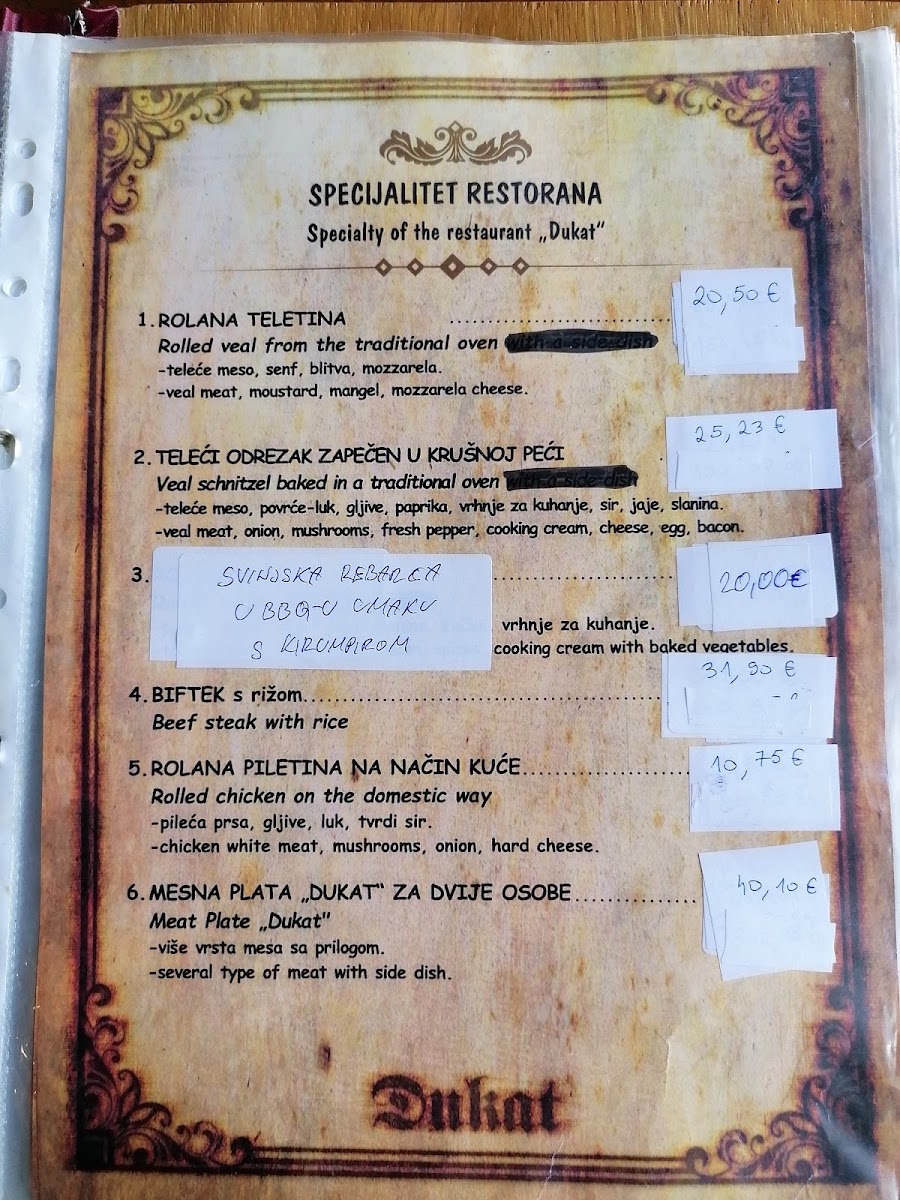 SPECIJALITET RESTORANA
Specialty of the restaurant „Dukat“
1. ROLANA TELETINA .......................................... 20,50 €
Rolled veal from the traditional oven with a side dish
-teleće meso, senf, blitva, mozzarela.
-veal meat, moustard, mangel, mozzarela cheese.
2. TELEĆI ODREZAK ZAPEČEN U KRUŠNOJ PEĆI . 25,23 €
Veal schnitzel baked in a traditional oven with a side dish
-teleće meso, povrće-luk, gljive, paprika, vrhnje za kuhanje, sir, jaje, slanina.
-veal meat, onion, mushrooms, fresh pepper, cooking cream, cheese, egg, bacon.
3. SVINJSKA REBARCA .................................. 20,00€
U BBQ-U UMAKU
vrhnje za kuhanje.
S KRUMPIROM
cooking cream with baked vegetables.
4. BIFTEK s rižom.................................................................. 31,90 €
Beef steak with rice
5. ROLANA PILETINA NA NAČIN KUĆE............................... 10,75 €
Rolled chicken on the domestic way
-pileća prsa, gljive, luk, tvrdi sir.
-chicken white meat, mushrooms, onion, hard cheese.
6. MESNA PLATA „DUKAT“ ZA DVIJE OSOBE....................... 40,10 €
Meat Plate „Dukat"
-više vrsta mesa sa prilogom.
-several type of meat with side dish.
Dukat